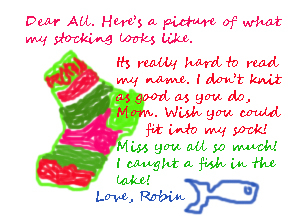 Dear All. Here's a picture of what
my stocking looks like.
Its really hard to read
my name. I don't knit
as good as you do,
Mom. Wish you could
fit into my sock!
Miss you all so much!
I caught a fish in the
lake!
Love, Robin